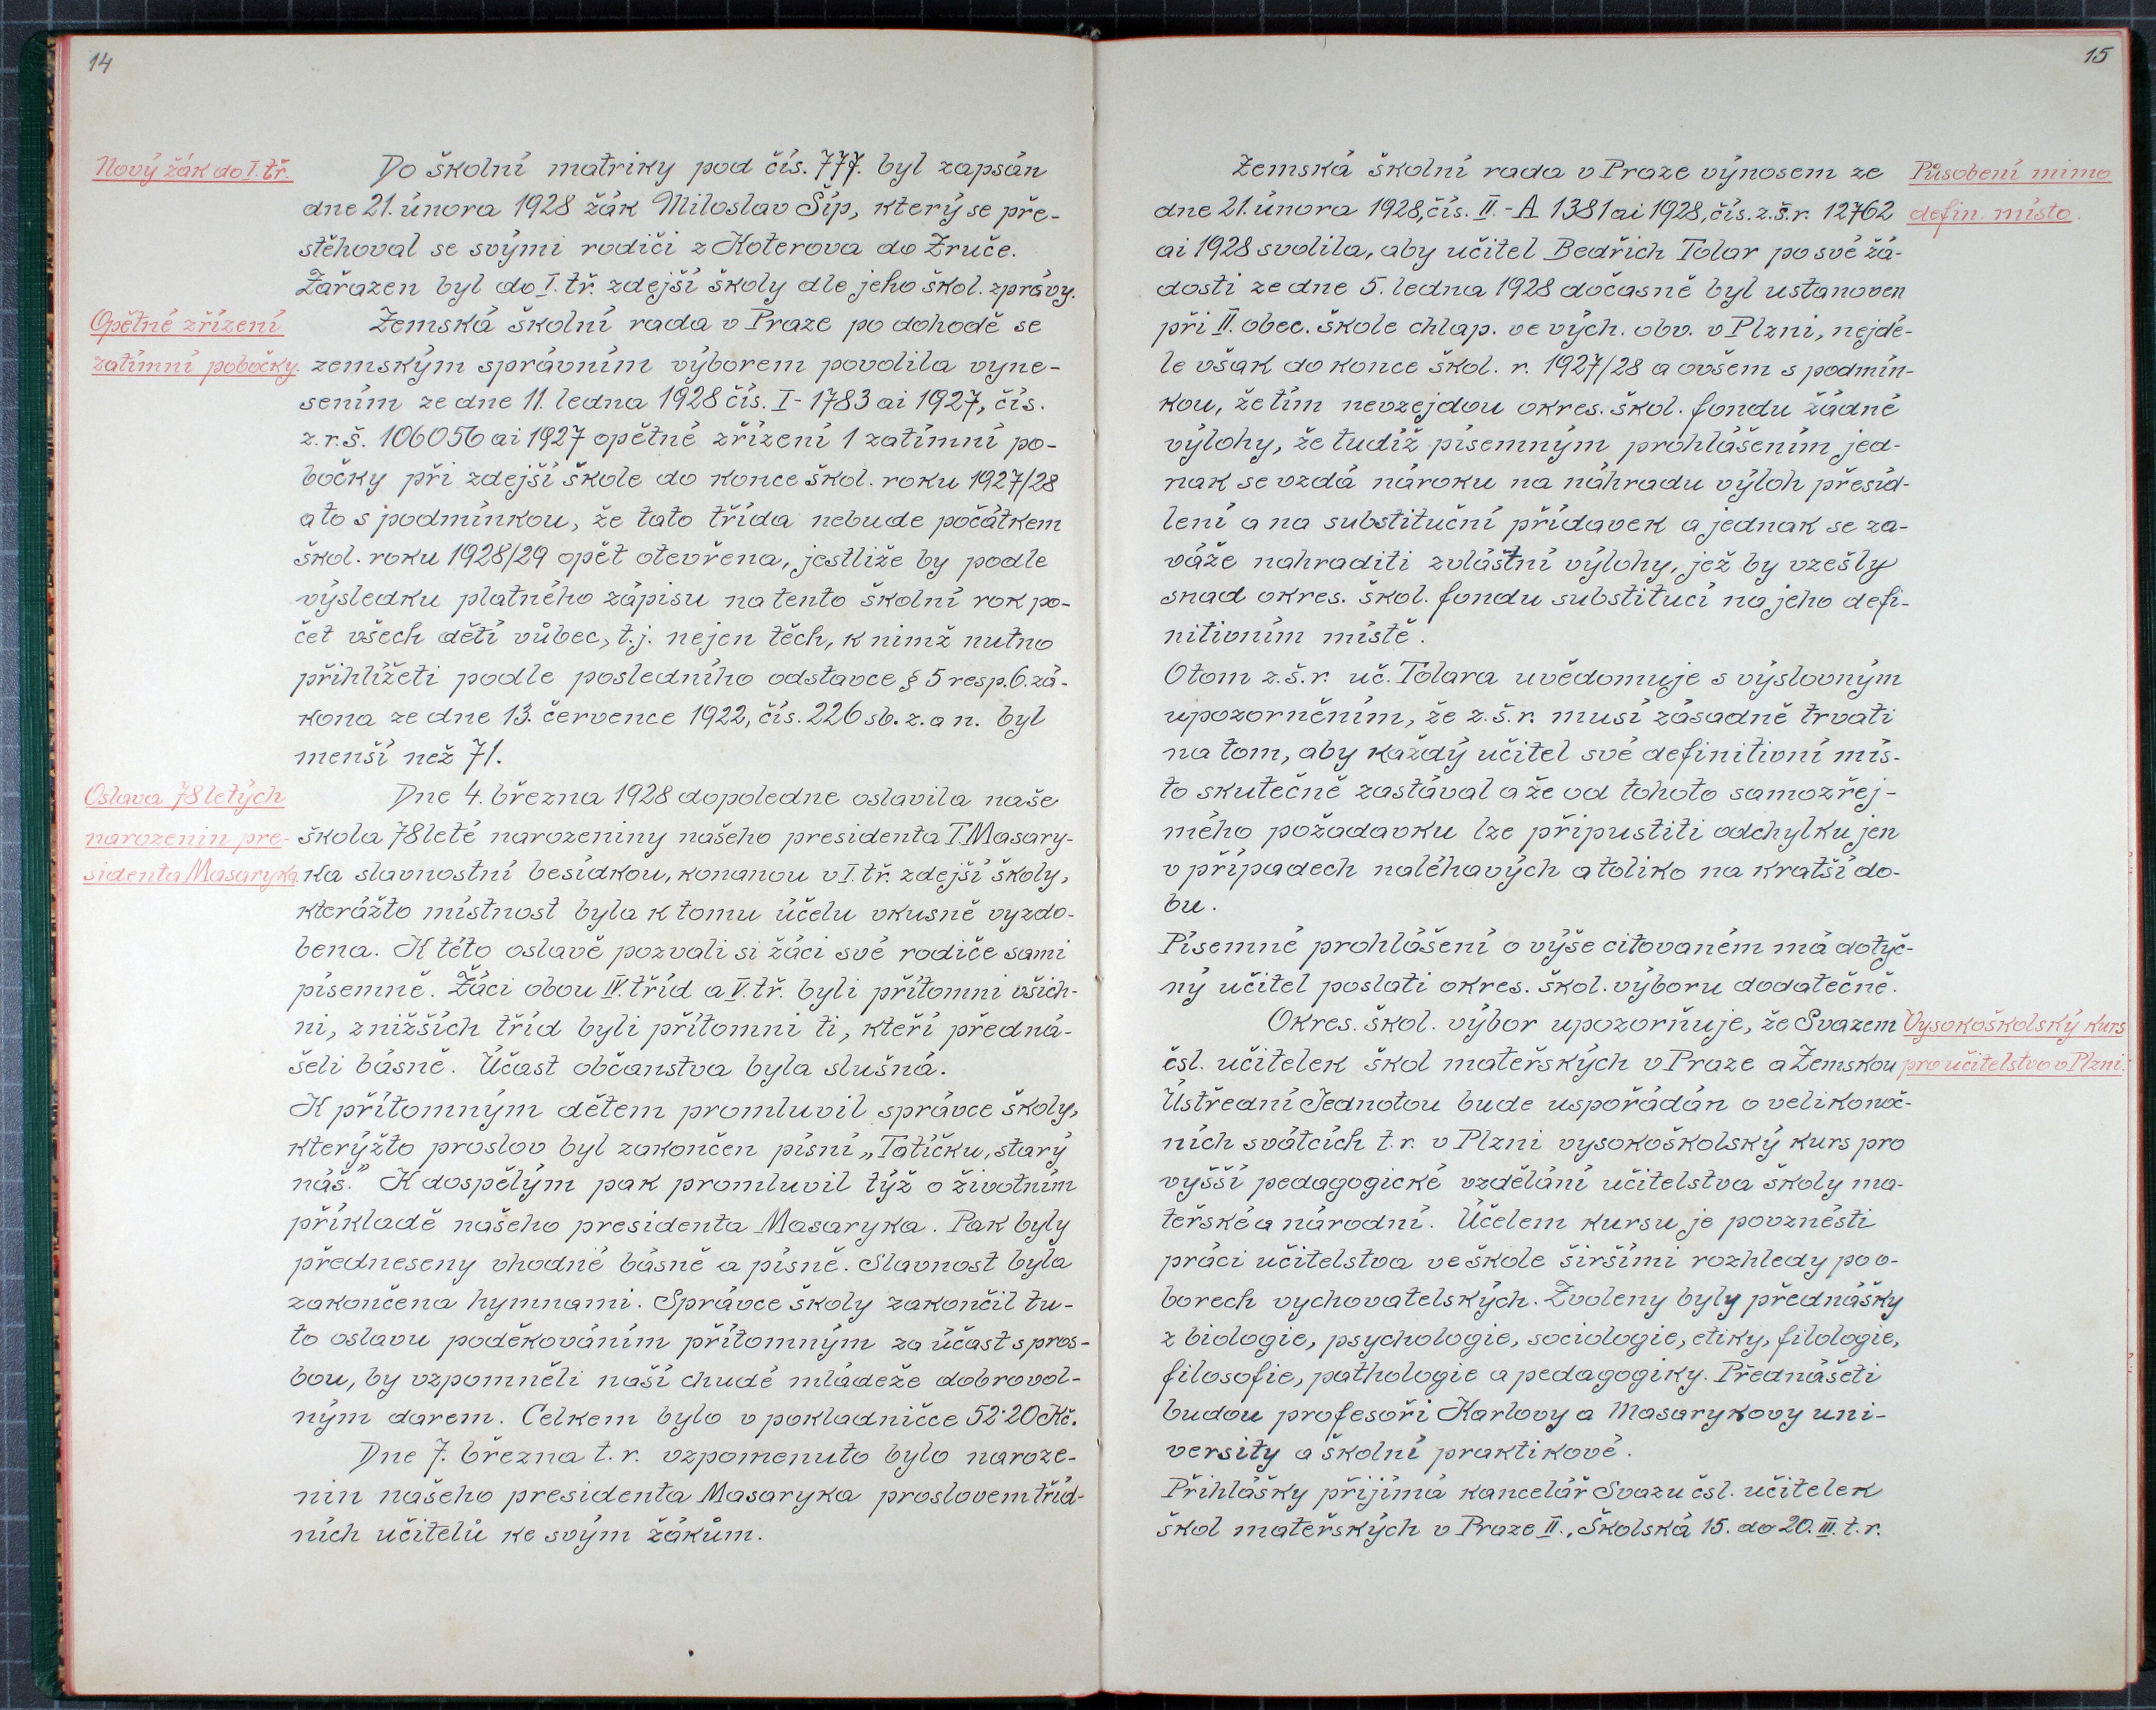 14
Nový žák do I. tř.
Do školní matriky pod čís. 777. byl zapsán
dne 21. února 1928 žák Miloslav Šíp, který se pře-
stěhoval se svými rodiči z Koterova do Zruče.
Zařazen byl do I. tř. zdejší školy dle jeho škol. zprávy.
Opětné zřízení
zatímní pobočky.
Zemská školní rada v Praze po dohodě se
zemským správním výborem povolila vyne-
sením ze dne 11. ledna 1928 čís. I-1783 ai 1927, čís.
z.r.š. 106056 ai 1927 opětné zřízení 1 zatímní po-
bočky při zdejší škole do konce škol. roku 1927/28
a to s podmínkou, že tato třída nebude počátkem
škol. roku 1928/29 opět otevřena, jestliže by podle
výsledku platného zápisu na tento školní rok po-
čet všech dětí vůbec, t.j. nejen těch, k nimž nutno
přihlížeti podle posledního odstavce § 5 resp. 6. zá-
kona ze dne 13. července 1922, čís. 226 sb. z. a n. byl
menší než 71.
Oslava 78letých
narozenin pre-
sidenta Masaryka.
Dne 4. března 1928 dopoledne oslavila naše
škola 78leté narozeniny našeho presidenta T. Masary-
ka slavnostní besídkou, konanou v I. tř. zdejší školy,
kterážto místnost byla k tomu účelu vkusně vyzdo-
bena. K této oslavě pozvali si žáci své rodiče sami
písemně. Žáci obou IV. tříd a V. tř. byli přítomni všich-
ni, z nižších tříd byli přítomni ti, kteří předná-
šeli básně. Účast občanstva byla slušná.
K přítomným dětem promluvil správce školy,
kterýžto proslov byl zakončen písní „Tatíčku, starý
náš." K dospělým pak promluvil týž o životním
příkladě našeho presidenta Masaryka. Pak byly
předneseny vhodné básně a písně. Slavnost byla
zakončena hymnami. Správce školy zakončil tu-
to oslavu poděkováním přítomným za účast s pros-
bou, by vzpomněli naší chudé mládeže dobrovol-
ným darem. Celkem bylo v pokladničce 52·20 Kč.
Dne 7. března t. r. vzpomenuto bylo naroze-
nin našeho presidenta Masaryka proslovem tříd-
ních učitelů ke svým žákům.
15
Působení mimo
defin. místo.
Zemská školní rada v Praze výnosem ze
dne 21. února 1928, čís. II.-A 1381 ai 1928, čís. z.š.r. 12762
ai 1928 svolila, aby učitel Bedřich Tolar po své žá-
dosti ze dne 5. ledna 1928 dočasně byl ustanoven
při II. obec. škole chlap. ve vých. obv. v Plzni, nejdé-
le však do konce škol. r. 1927/28 a ovšem s podmín-
kou, že tím nevzejdou okres. škol. fondu žádné
výlohy, že tudíž písemným prohlášením jed-
nak se vzdá nároku na náhradu výloh přesíd-
lení a na substituční přídavek a jednak se za-
váže nahraditi zvláštní výlohy, jež by vzešly
snad okres. škol. fondu substitucí na jeho defi-
nitivním místě.
O tom z.š.r. uč. Tolara uvědomuje s výslovným
upozorněním, že z.š.r. musí zásadně trvati
na tom, aby každý učitel své definitivní mís-
to skutečně zastával a že od tohoto samozřej-
mého požadavku lze připustiti odchylku jen
v případech naléhavých a toliko na kratší do-
bu.
Písemné prohlášení o výše citovaném má dotyč-
ný učitel poslati okres. škol. výboru dodatečně.
Vysokoškolský kurs
pro učitelstvo v Plzni.
Okres. škol. výbor upozorňuje, že Svazem
čsl. učitelek škol mateřských v Praze a Zemskou
Ústřední Jednotou bude uspořádán o velikonoč-
ních svátcích t. r. v Plzni vysokoškolský kurs pro
vyšší pedagogické vzdělání učitelstva školy ma-
teřské a národní. Účelem kursu je povznésti
práci učitelstva ve škole širšími rozhledy po o-
borech vychovatelských. Zvoleny byly přednášky
z biologie, psychologie, sociologie, etiky, filologie,
filosofie, pathologie a pedagogiky. Přednášeti
budou profesoři Karlovy a Masarykovy uni-
versity a školní praktikové.
Přihlášky přijímá kancelář Svazu čsl. učitelek
škol mateřských v Praze II., Školská 15. do 20. III. t. r.